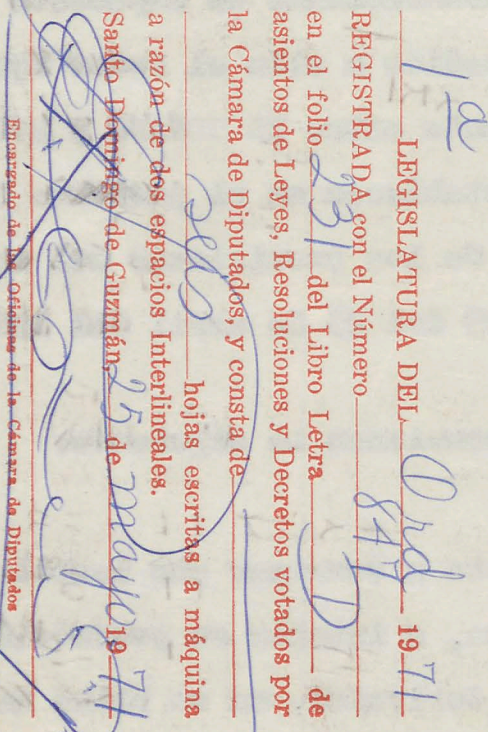 1a LEGISLATURA DEL Ord 1971
REGISTRADA con el Número 847
en el folio 231 del Libro Letra D de
asientos de Leyes, Resoluciones y Decretos votados por
la Cámara de Diputados, y consta de
seis hojas escritas a máquina
a razón de dos espacios Interlineales.
Santo Domingo de Guzmán, 25 de mayo 1971
Encargado de las Oficinas de la Cámara de Diputados